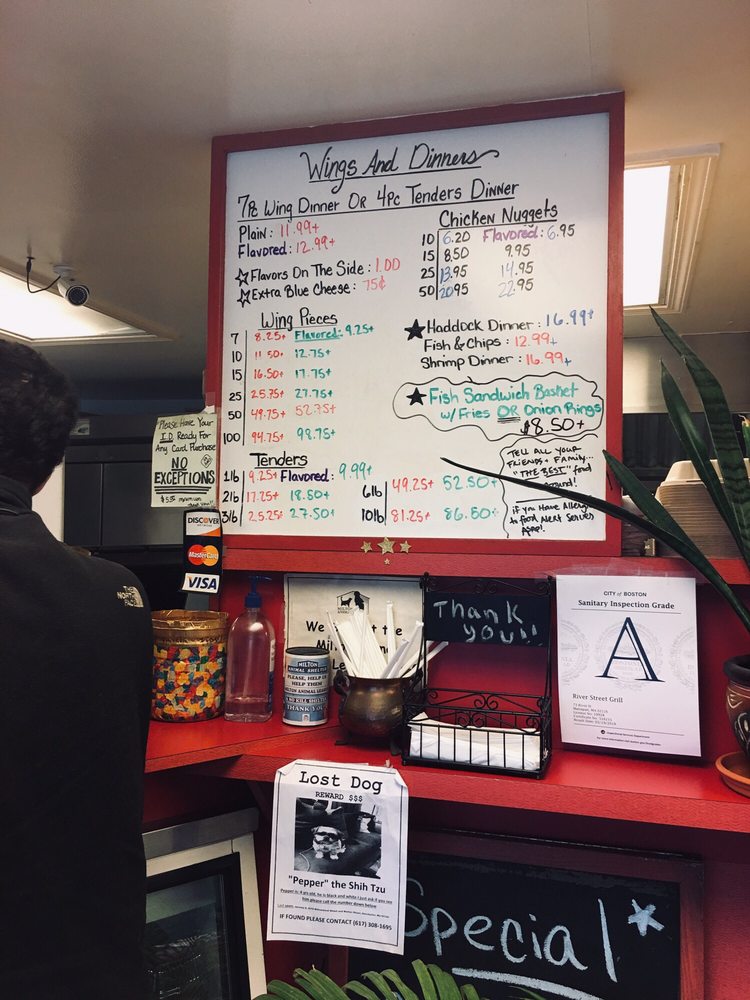 Wings And Dinners
7Pc Wing Dinner Or 4Pc Tenders Dinner
Plain: 11.99+
Flavored: 12.99+
Flavors On The Side: 1.00
Extra Blue Cheese: 75¢
Chicken Nuggets
10 6.20 Flavored: 6.95
15 8.50 9.95
25 13.95 14.95
50 20.95 22.95
Wing Pieces
7 8.25+ Flavored: 9.25+
10 11.50+ 12.75+
15 16.50+ 17.75+
25 25.75+ 27.75+
50 49.75+ 52.75+
100 94.75+ 98.75+
Haddock Dinner: 16.99+
Fish & Chips: 12.99+
Shrimp Dinner: 16.99+
Fish Sandwich Basket
w/ Fries OR Onion Rings
$8.50+
Tenders
1lb 9.25+ Flavored: 9.99+
2lb 17.25+ 18.50+
3lb 25.25+ 27.50+
6lb 49.25+ 52.50+
10lb 81.25+ 86.50+
TELL ALL YOUR
FRIENDS + FAMILY...
"THE BEST" food
if you Have Allergy
to food Alert Servers
ASAP!
Please Have Your
I.D Ready For
Any Card Purchase
NO
EXCEPTIONS
DISCOVER
MasterCard
VISA
NORTH
FACE
MILTON
ANIMAL SHELTER
PLEASE, HELP
HELP THEM
MILTON ANIMAL SHELTER
NO KILL SHELTER
THANK YOU
Thank
you!!
CITY of BOSTON
Sanitary Inspection Grade
A
River Street Grill
Lost Dog
REWARD $$$
"Pepper" the Shih Tzu
Pepper is 4 yrs old, he is black and white I just ask if you see
him please call the number down below
IF FOUND PLEASE CONTACT (617) 308-1695
Special